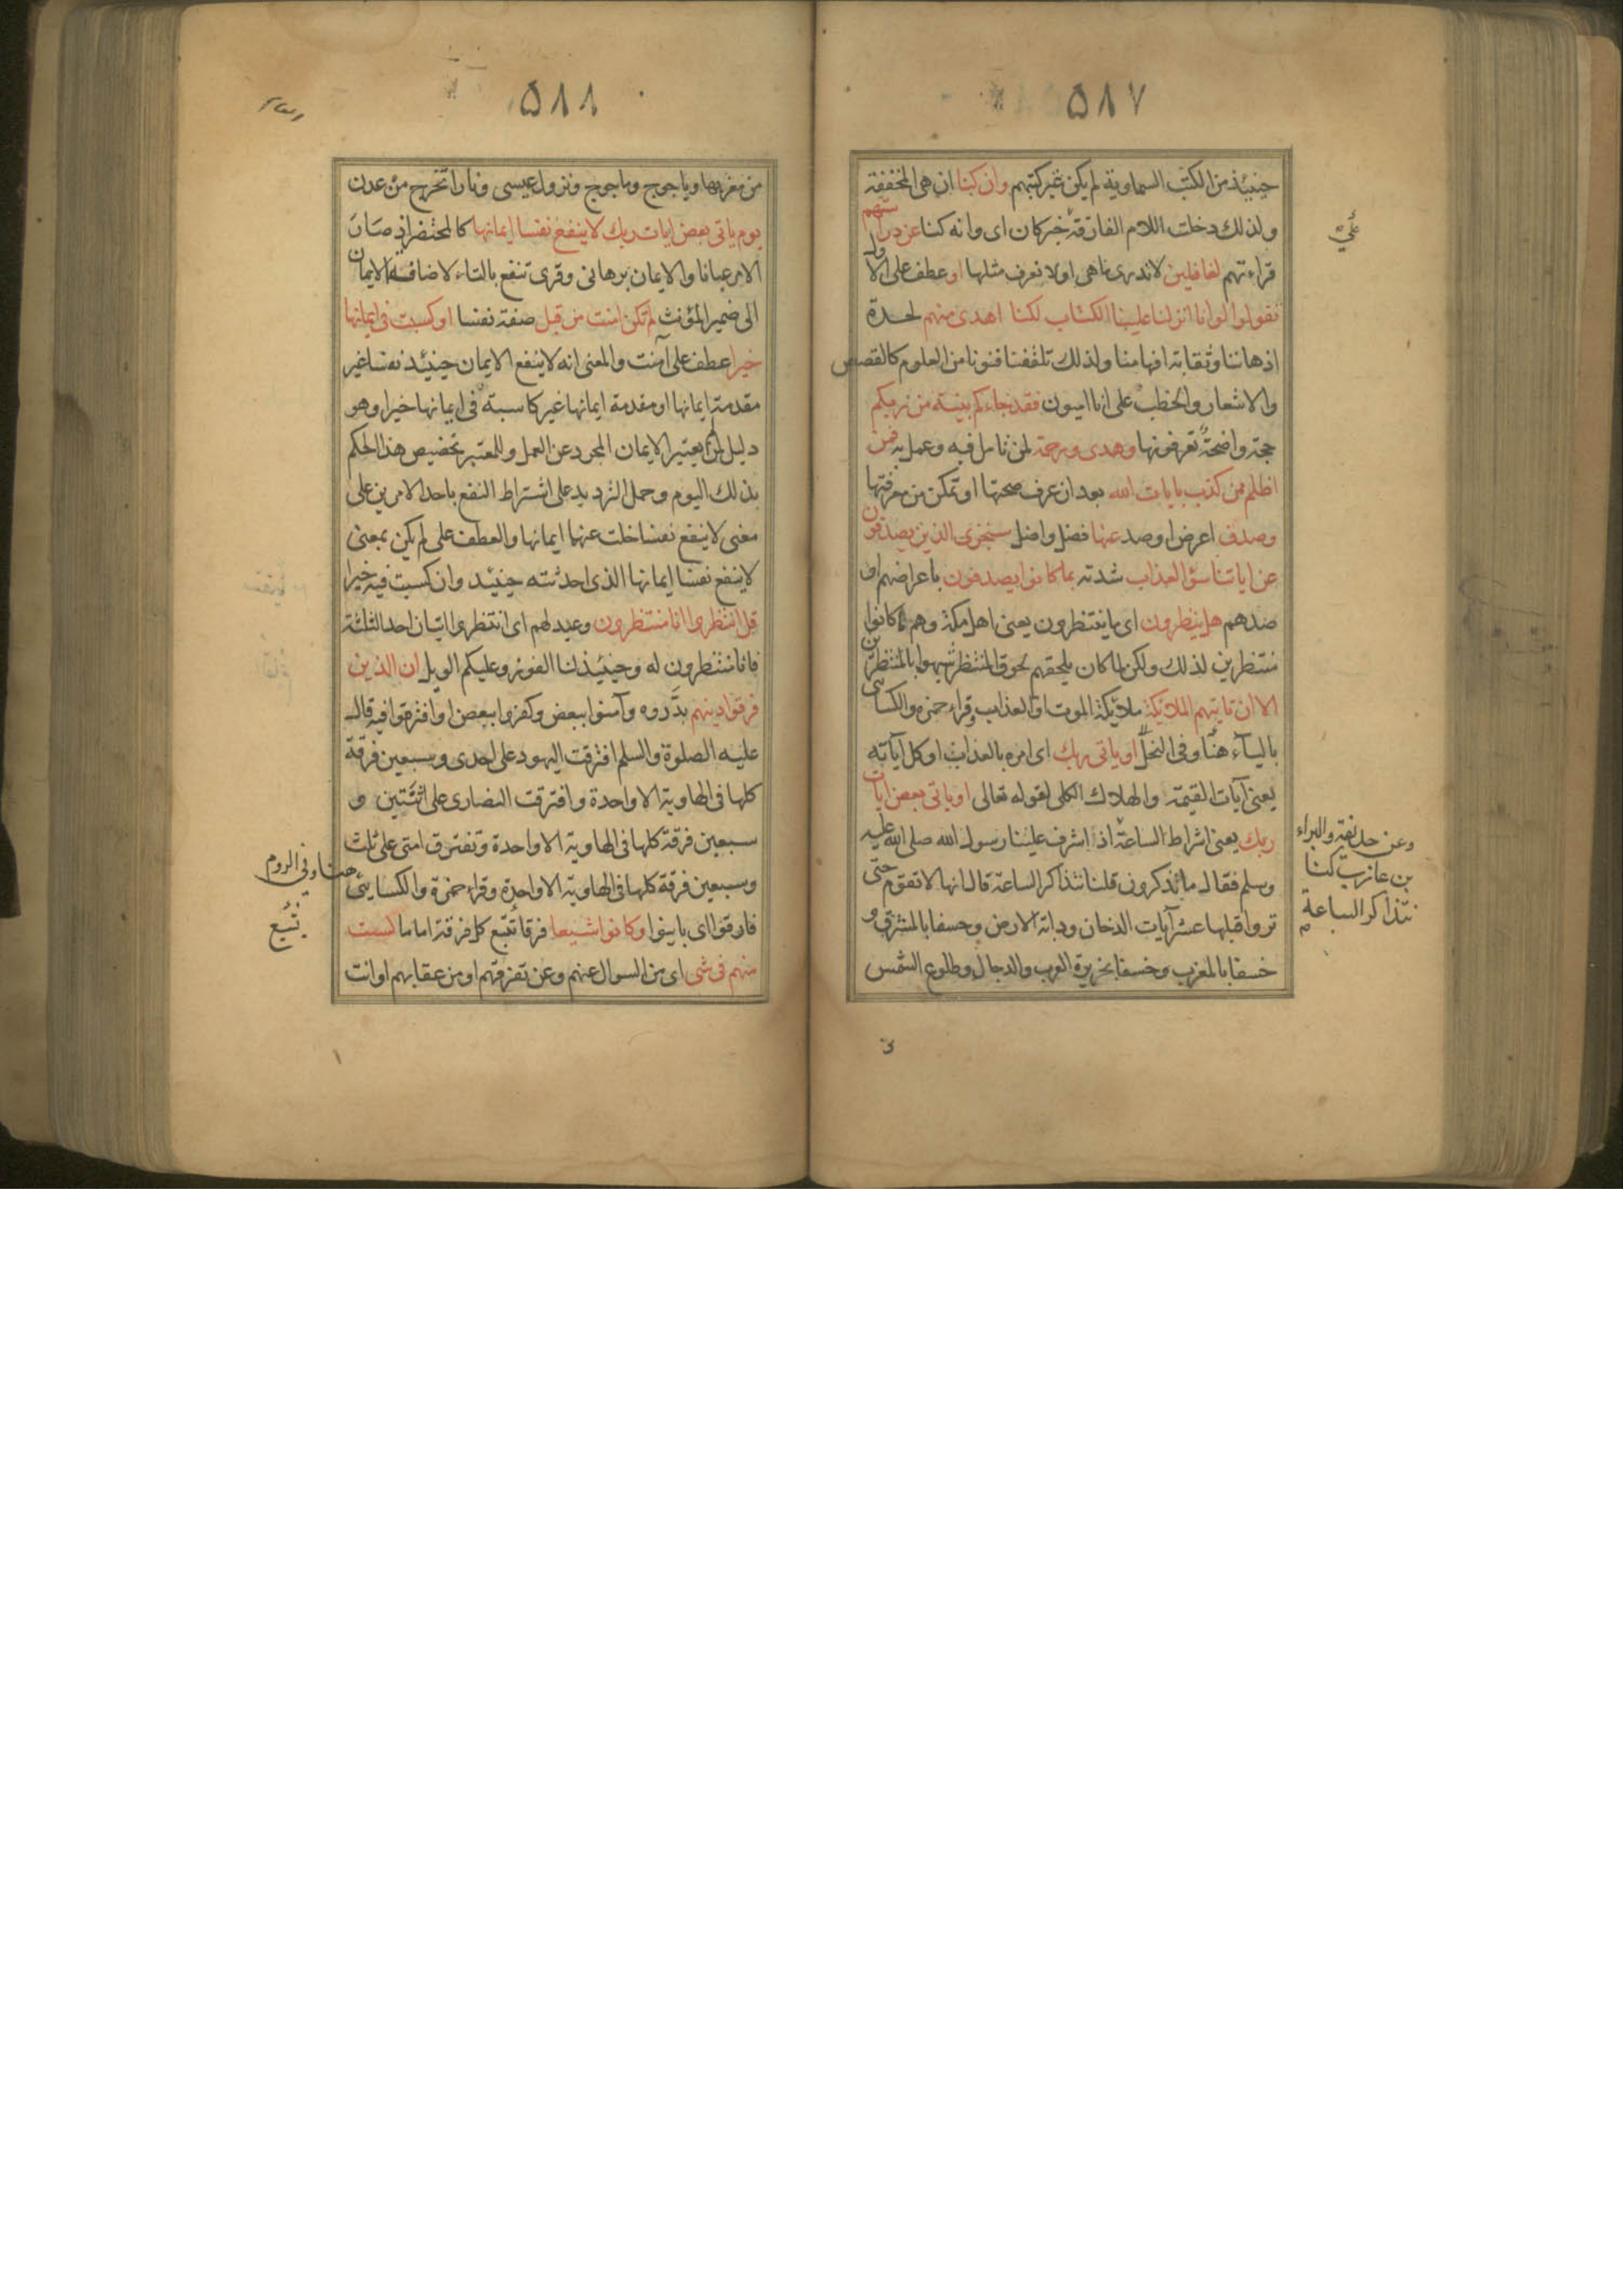 ٥٨٧
حينيذ من الكتب السماوية لم يكن غير كتبهم وان كنا ان هى المخففة
ولذلك دخلت اللام الفارقة خبر كان اى وانه كنا عن دراستهم
على
قراءتهم لغافلين لا ندرى ما هى او لا نعرف مثلها او عطف على الاول
تقولوا لو انا انزل علينا الكتاب لكنا اهدى منهم لحدة
اذهاننا وثقابة افهامنا ولذلك تلقفنا فنونا من العلوم كالقصص
والاشعار والخطب على انا اميون فقد جاءكم بينة من ربكم
حجة واضحة تعرفونها وهدى ورحمة لمن تامل فيه وعمل به فمن
اظلم ممن كذب بايات الله بعد ان عرف صحتها او تمكن من معرفتها
وصدف اعرض او صد عنها فضل واضل سنجزى الذين يصدفون
عن اياتنا سؤ العذاب شدته بما كانوا يصدفون باعراضهم او
صدهم هل ينظرون اى ما ينتظرون يعنى اهل مكة وهم ما كانوا
منتظرين لذلك ولكن لما كان يلحقهم لحوق المنتظر شبهوا بالمنتظرين
الا ان تاتيهم الملايكة ملايكة الموت او العذاب وقراء حمزة والكسائى
بالياء هنا وفى النحل او ياتى ربك اى امره بالعذاب او كل آياته
يعنى آيات القيمة والهلاك الكلى لقوله تعالى او ياتى بعض ايات
ربك يعنى اشراط الساعة اذ اشرف علينا رسول الله صلى الله عليه
وعن حذيفة والبراء
بن عازب كنا
نتذاكر الساعة
وسلم فقال ما تذكرون قلنا نتذاكر الساعة قال انها لا تقوم حتى
تروا قبلها عشر آيات الدخان ودابة الارض وخسفا بالمشرق و
خسفا بالمغرب وخسفا بجزيرة العرب والدجال وطلوع الشمس
٥٨٨
من مغربها وياجوج وماجوج ونزول عيسى ونارا تخرج من عدن
يوم ياتى بعض ايات ربك لا ينفع نفسا ايمانها كالمحتضر اذ صار
الامر عيانا والايمان برهانى وقرى تنفع بالتاء لاضافة الايمان
الى ضمير المؤنث لم تكن امنت من قبل صفة نفسا او كسبت فى ايمانها
خيرا عطف على آمنت والمعنى انه لا ينفع الايمان حينيذ نفسا غير
مقدمة ايمانها او مقدمة ايمانها غير كاسبة فى ايمانها خيرا وهو
دليل لمن لم يعتبر الايمان المجرد عن العمل وللمعتبر تخصيص هذا الحكم
بذلك اليوم وحمل الترديد على اشتراط النفع باحد الامرين على
معنى لا ينفع نفسا خلت عنهما ايمانها والعطف على لم يكن بمعنى
لا ينفع نفسا ايمانها الذى احدثته حينيذ وان كسبت فيه خيرا
قل انتظروا انا منتظرون وعيد لهم اى انتظروا اتيان احد الثلثة
فانا منتظرون له وحينيذ لنا الفوز وعليكم الويل ان الذين
فرقوا دينهم بدّدوه وآمنوا ببعض وكفروا ببعض او افترقوا فيه قال
عليه الصلوة والسلم افترقت اليهود على احدى وسبعين فرقة
كلها فى الهاوية الا واحدة وافترقت النصارى على اثنتين و
سبعين فرقة كلها فى الهاوية الا واحدة وتفترق امتى على ثلث
وسبعين فرقة كلها فى الهاوية الا واحدة وقراء حمزة والكسايى
هنا وفى الروم
فارقوا اى باينوا وكانوا شيعا فرقا تتبع كل فرقة اماما لست
منهم فى شى اى من السوال عنهم وعن تفرقهم او من عقابهم او انت